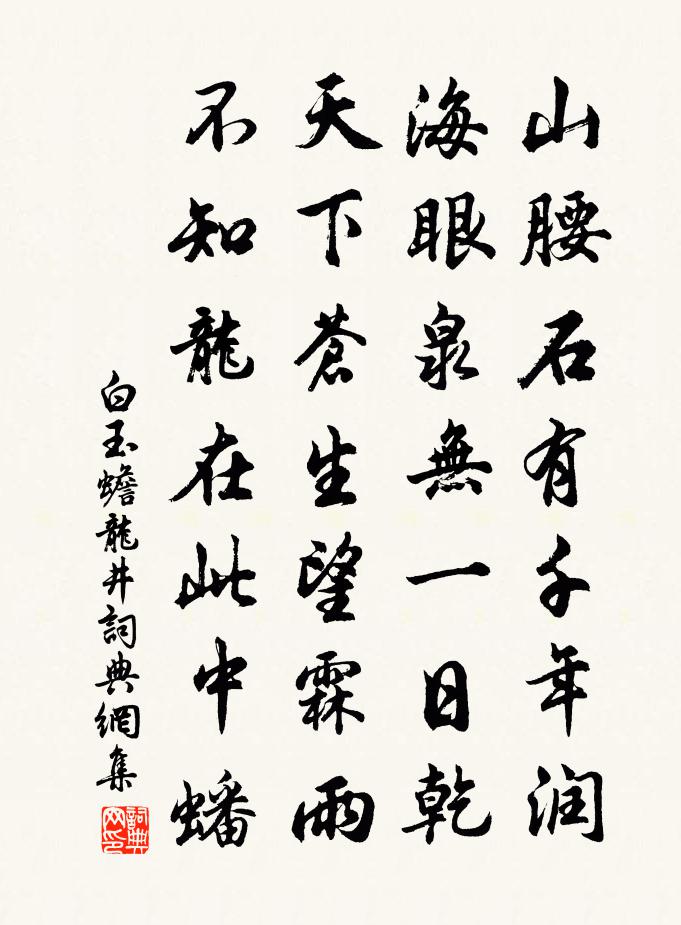 山腰石有千年润
海眼泉無一日乾
天下蒼生望霖雨
不知龍在此中蟠
白玉蟾龍井詞典網集
詞典网印